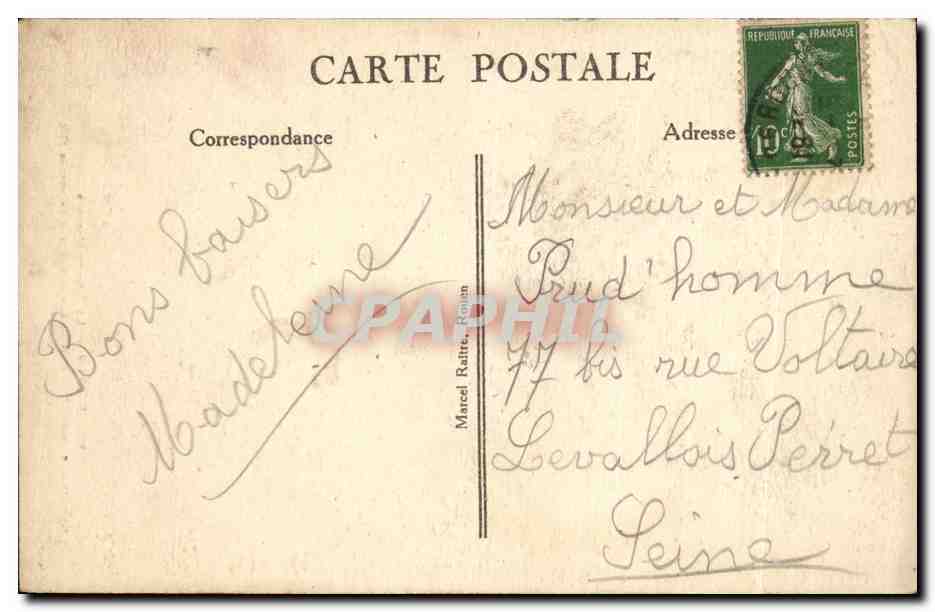 CARTE POSTALE
Correspondance
Adresse
REPUBLIQUE FRANÇAISE
10c
POSTES
Bons baisers
Madeleine
Marcel Raître, Rouen
Monsieur et Madame
Prud'homme
77 bis rue Voltaire
Levallois Perret
Seine
CPAPHIL